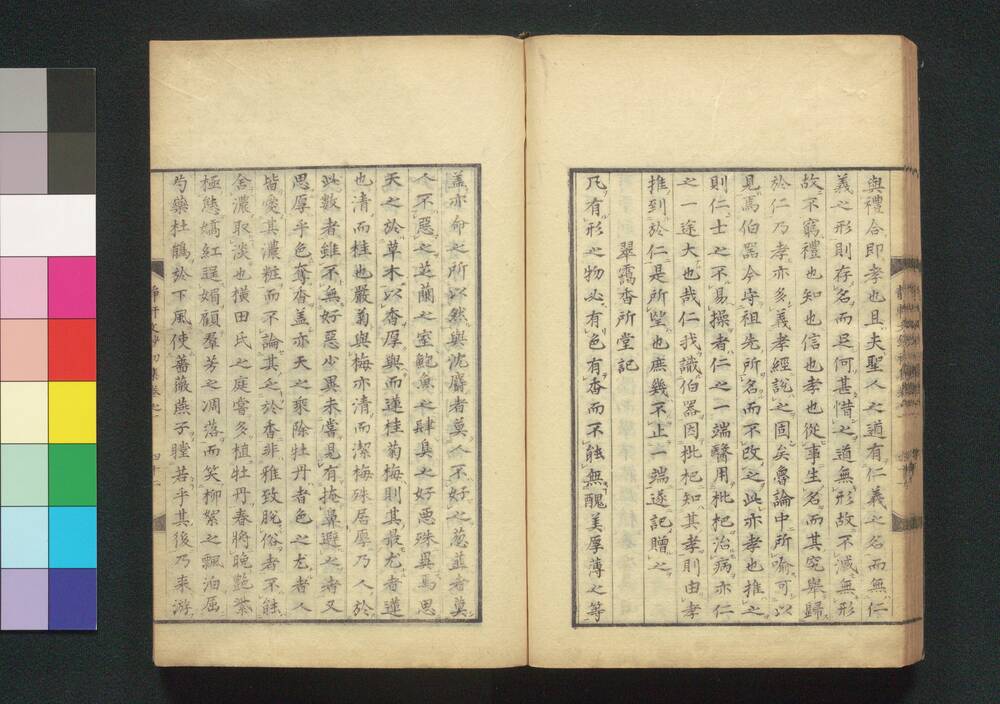 與禮合即孝也且夫聖人之道有仁義之名而無仁
義之形則存名而足何甚惜之道無形故不滅無形
故不窮禮也知也信也孝也從事生名而其究舉歸
於仁乃孝亦多義孝經說之固矣魯論中所喻可以
見焉伯器今守祖先所名而不改之此亦孝也推之
則仁士之不易操者仁之一端醫用枇杷治病亦仁
之一途大也哉仁我識伯器因枇杷知其孝則由孝
推到於仁是所望也庶幾不止一端遂記贈之
翠靄香所堂記
凡有形之物必有色有香而不能無醜美厚薄之等
蓋亦命之所以然與沈麝者莫於不好之葱韮者莫
人不惡之芝蘭之室鮑魚之肆臭之好惡殊異焉思
天之於草木以香厚與而蓮桂菊梅則其最尤者蓮
也清而桂也嚴菊與梅亦清而潔梅殊居厚乃人於
此數者雖不無好惡少異未嘗見有掩鼻避之者又
思厚乎色奪香蓋亦天之乘除牡丹者色之尤者人
皆愛其濃粧而不論其乏於香非雅致脫俗者不能
舍濃取淡也橫田氏之庭嘗多植牡丹春將晚艷紫
極態嬌紅逞媚顧羣芳之凋落而笑柳絮之飄泊屈
芍藥杜鵑於下風使薔薇燕子瞠若乎其後乃來游